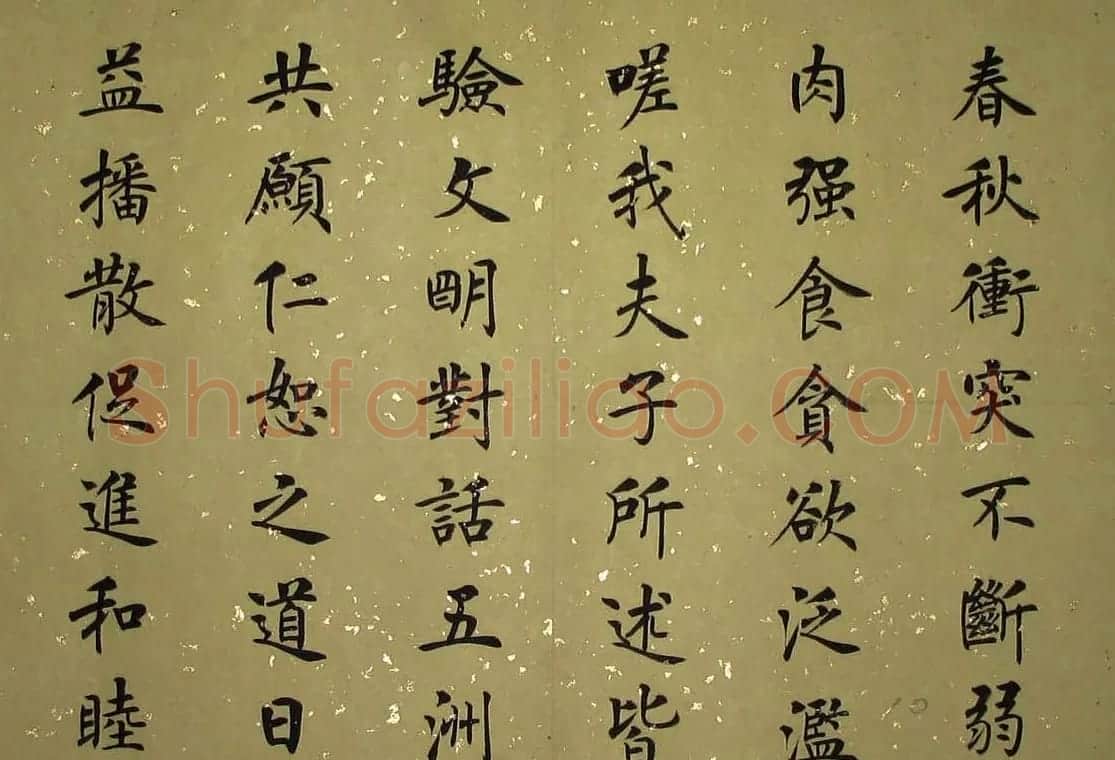 春秋衝突不斷弱
肉强食貪欲泛濫
嗟我夫子所述皆
驗文明對話五洲
共願仁恕之道日
益播散促進和睦
Shufaziliao.COM